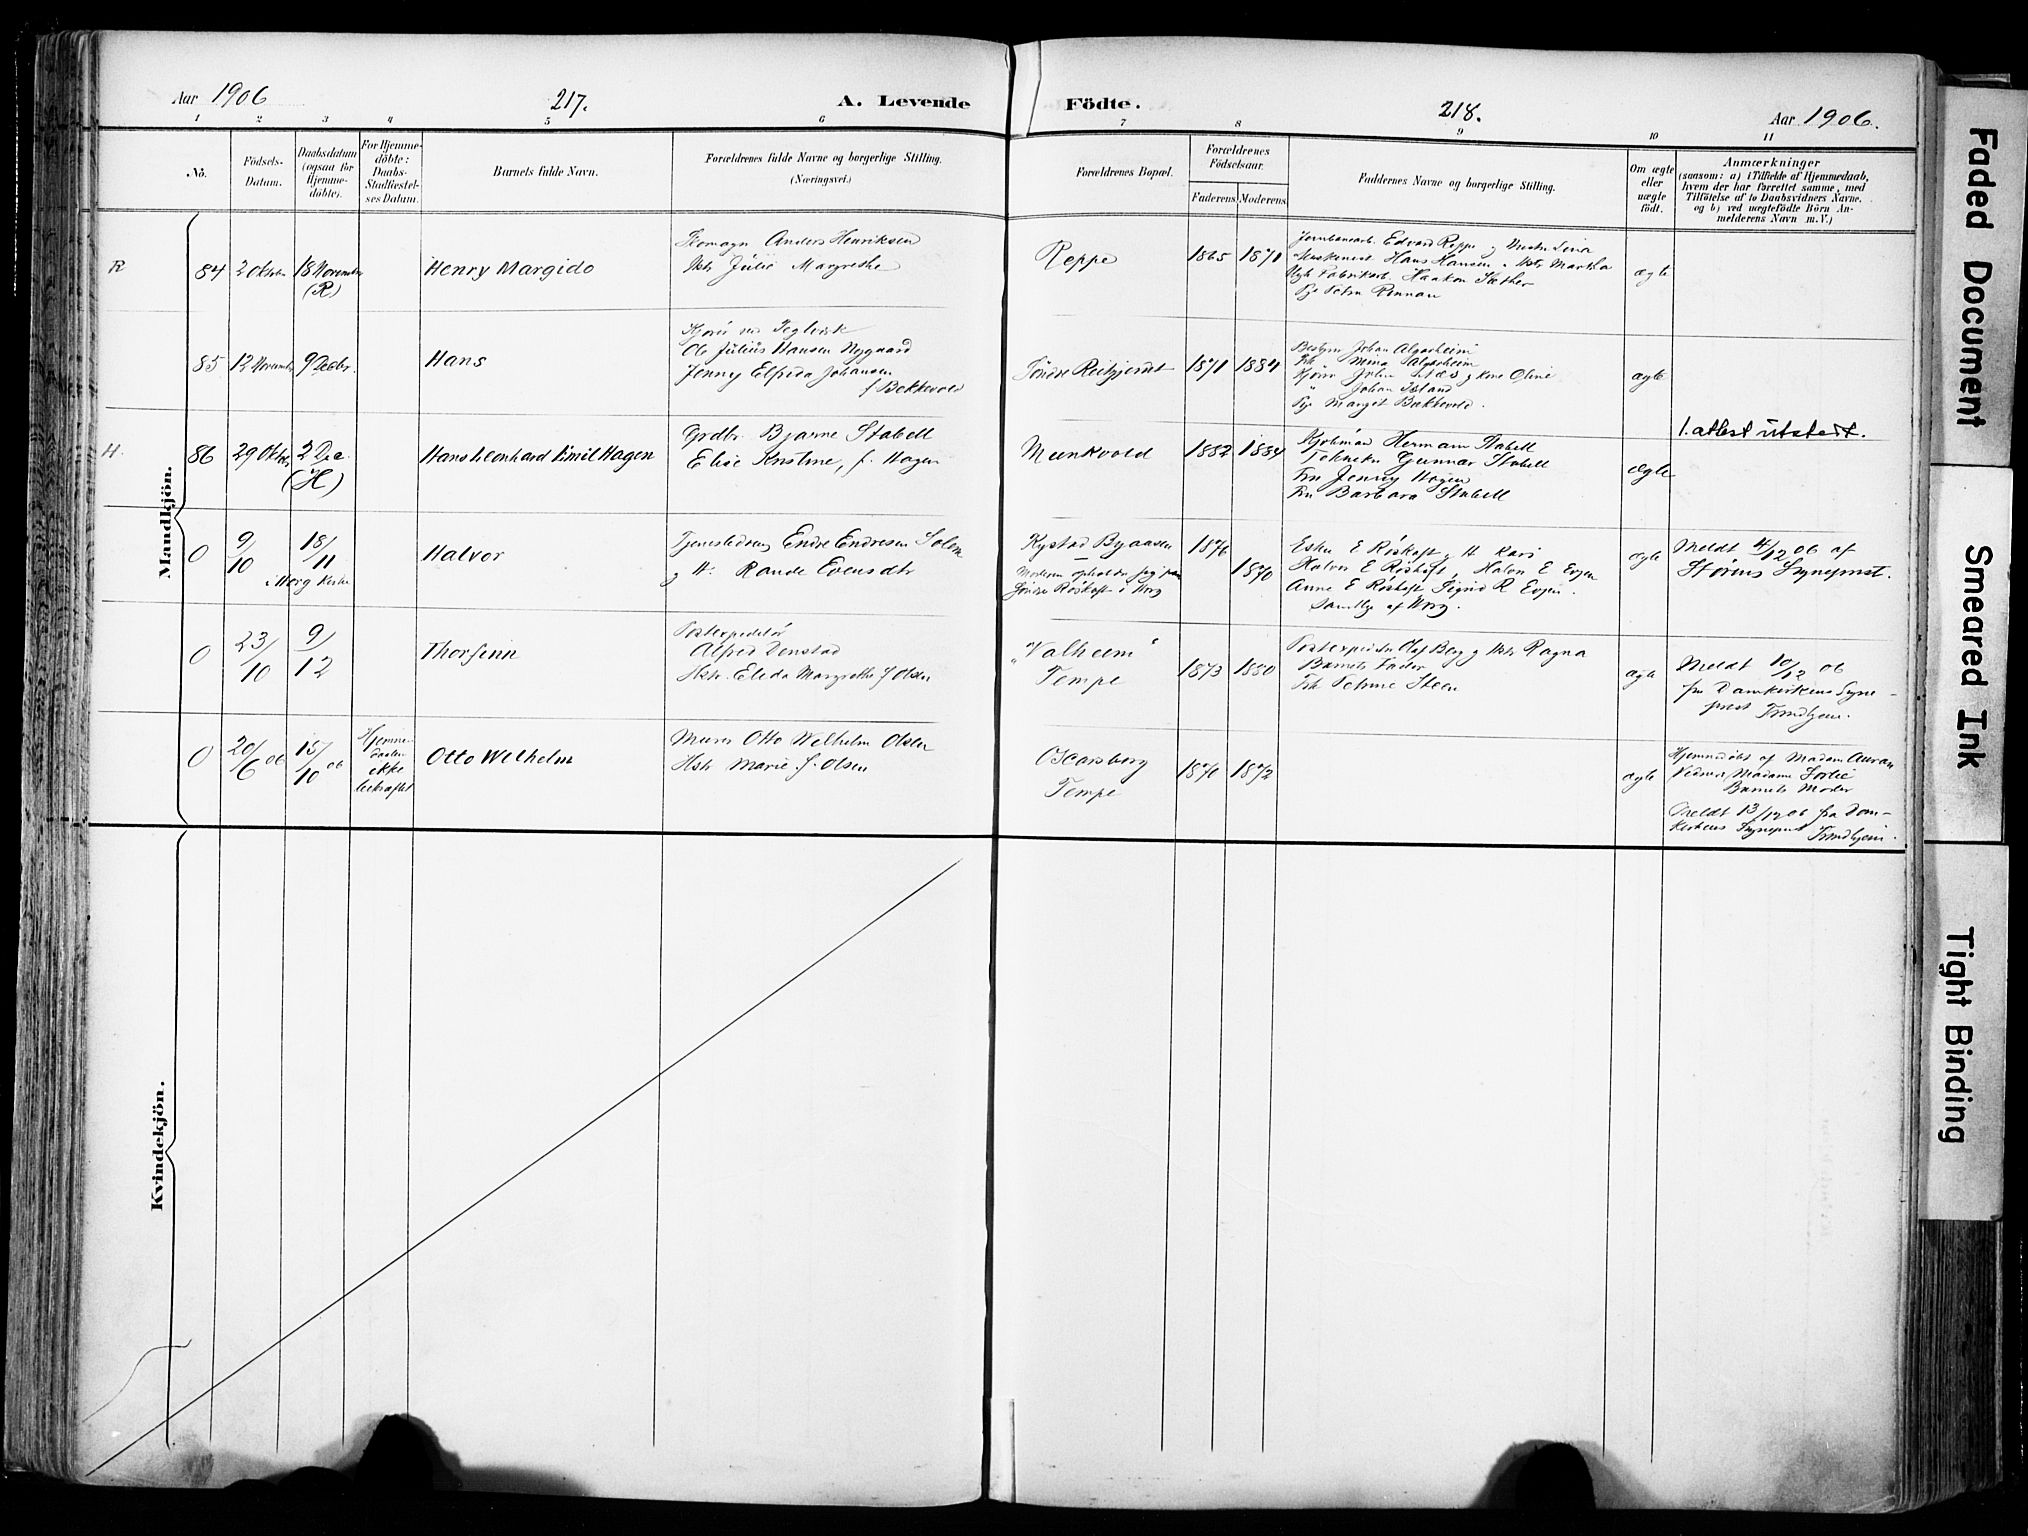 Aar 1906
217.
A. Levende
Födte.
218.
Aar 1906.
1 2 3 4 5 6 7 8 9 10 11
No.
Födsels-
Datum.
Daabsdatum
(ogsaa for
Hjemme-
döbte).
For Hjemme-
döbte:
Daabs-
Stadfæstel-
ses Datum.
Barnets fulde Navn.
Forældrenes fulde Navne og borgerlige Stilling.
(Næringsvei.)
Forældrenes Bopæl.
Forældrenes
Födselsaar.
Faderens
Moderens
Faddernes Navne og borgerlige Stilling.
Om ægte
eller
uægte
födt.
Anmærkninger
(saasom: a) i Tilfælde af Hjemmedaab,
hvem der har forrettet samme, med
Tilföielse af to Daabsvidners Navne.
og b) ved uægtefödte Börn An-
melderens Navn m.V.)
Mandkjön.
R
84
2 Oktober
18 November
(R)
Henry Margido
Anders Henriksen
Hstr Julie Margrethe
Reppe
1865
1871
Jernbanearb. Edvard Reppe og Hustru
Hans Hansen Hstr Martha
Ugk. Fabrikarb. Haakon Sæther
Pige Petra Rennan
ægte
85
12 November
9 Decbr.
Hans
Kjører ved Teglverk
Ole Julius Hansen Nygaard
Jenny Elfrida Johansen
f. Bekkevold
Søndre
1871
1884
Bestyrer Johan Alfarheim
Frk Mina Alfarheim
Kjører Johan og Kone Oline
" Johan
Pige Margit Bekkevold.
ægte
H.
86
29 Oktober
2 Dec.
(H)
Hans Leonhard Emil Hagen
Grdbr. Bjarne Stabell
Elise Kristine, f. Hagen
Munkvold
1882
1884
Kjøbmand Herman Stabell
Tekniker Gunnar Stabell
Fru Jenny Hagen
Fru Barbara Stabell
ægte
1. attest utstedt.
0
9/10
18/11
i Horg Kirke
Halvor
Tjenestedreng Endre Endresen Solem
og H. Rande Evensdtr
Kystad Byaasen
Moderen opholder sig paa
Søndre Røskaft i Horg
1876
1870
Esten E Røskaft og H. Kari
Halvor E Røskaft, Halvor E Evjen
Anne E Røskaft Sigrid R Evjen.
Samtlige af Horg.
ægte
Meldt 4/12 06 af
Størens Sogneprest.
0
23/10
9/12
Thorfinn
Postexpeditør
Alfred Denstad
Hstr. Elida Margrethe f Olsen
"Valheim"
Tempe
1873
1880
Postexpeditør Olaf Berg og Hstr Ragna
Barnets Fader
Frk Petrine Steen
ægte
Meldt 10/12 06
fra Domkirkens Sogne-
prest Trondhjem.
0
20/6 06
15/10 06
Hjemme-
daaben
ikke
bekræftet
Otto Wilhelm
Murer Otto Wilhelm Olsen
Hstr Marie f. Olsen
Oscarsborg
Tempe
1871
1872
ægte
Hjemmedøbt af Madam Aunan
Vidner: Madame Sørlie
Barnets Moder
Meldt 13/12 06 fra Dom-
kirkens Sogneprest Trondhjem.
Kvindekjön.
Faded Document
Smeared Ink
Tight Binding